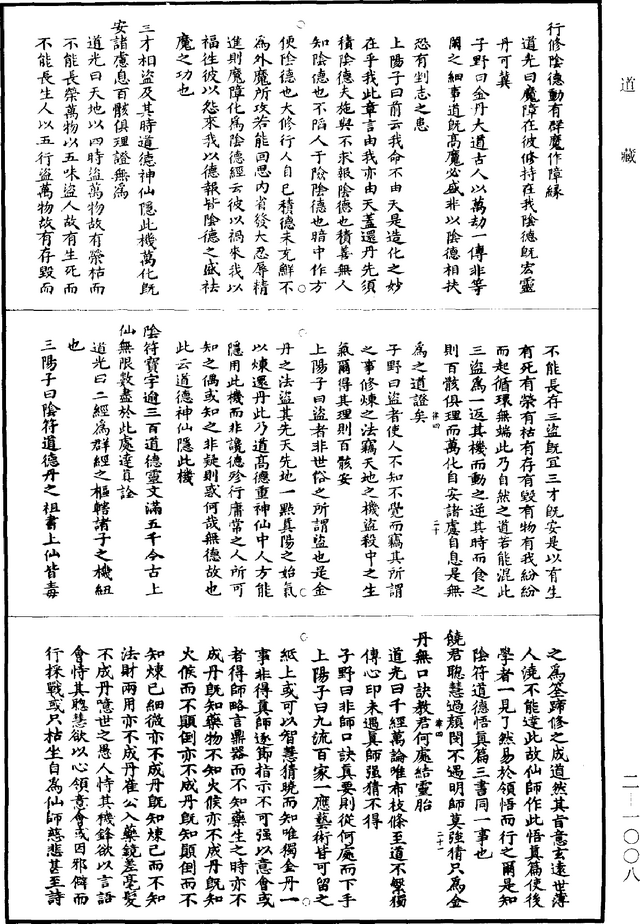 道藏
行修陰德動有群魔作障緣
道光曰魔障在彼修持在我陰德既宏靈
丹可冀
子野曰金丹大道古人以萬劫一傳非等
閑之細事道既高魔必盛非以陰德相扶
恐有剉志之患
上陽子曰前云我命不由天是造化之妙
在乎我此章言由我亦由天蓋還丹先須
積陰德夫施與不求報陰德也積善無人
知陰德也不陷人于險陰德也暗中作方
便陰德也大修行人自己積德未充鮮不
為外魔所攻若能回思內省發大忍辱精
進則魔障化為陰德經云彼以禍來我以
福往彼以怨來我以德報皆陰德之盛祛
魔之功也
三才相盜及其時道德神仙隱此機萬化既
安諸慮息百骸俱理證無為
道光曰天地以四時盜萬物故有榮枯而
不能長榮萬物以五味盜人故有生死而
不能長生人以五行盜萬物故有存毀而
不能長存三盜既宜三才既安是以有生
有死有榮有枯有存有毀有物有我紛紛
而起循環無端此乃自然之道若能混此
三盜為一返其機而動之逆其時而食之
則百骸俱理而萬化自安諸慮自息是無
為之道證矣
子野曰盜者使人不知不覺而竊其所謂
之事修煉之法竊天地之機盜殺中之生
氣爾得其理則百骸安
上陽子曰盜者非世俗之所謂盜也是金
丹之法盜其先天先地一點真陽之始氣
以煉還丹此乃道高德重神仙中人方能
隱用此機而非譾德殄行庸常之人所可
知之偶或知之非疑則惑何哉無德故也
此云道德神仙隱此機
陰符寶字逾三百道德靈文滿五千今古上
仙無限數盡於此處達真詮
道光曰二經為群經之樞轄諸子之機紐
也
三陽子曰陰符道德丹之祖書上仙皆毒
之為筌蹄修之成道然其旨意玄遠世薄
人澆不能達此故仙師作此悟真篇使後
學者一見了然易於領悟而行之爾是知
陰符道德悟真篇三書同一事也
饒君聰慧過顏閔不遇明師莫強猜只為金
丹無口訣教君何處結靈胎
道光曰千經萬論唯布枝條至道不繁獨
傳心印未遇真師強猜不得
子野曰非師口訣真要則從何處而下手
上陽子曰九流百家一應藝術皆可留之
紙上或可以智慧猜曉而知唯獨金丹一
事非得真師逐節指示不可強以意會或
者得師略言鼎器而不知藥生之時亦不
成丹既知藥物不知火候亦不成丹既知
火候而不顛倒亦不成丹既知顛倒而不
知煉己細微亦不成丹既知煉己而不知
法財兩用亦不成丹崔公入藥鏡差毫髮
不成丹噫世之愚人恃其機鋒欲以言語
會恃其聰慧欲以心領意會或因邪僻而
行採戰或只枯坐自為仙師慈悲甚至詩
二一一〇〇八